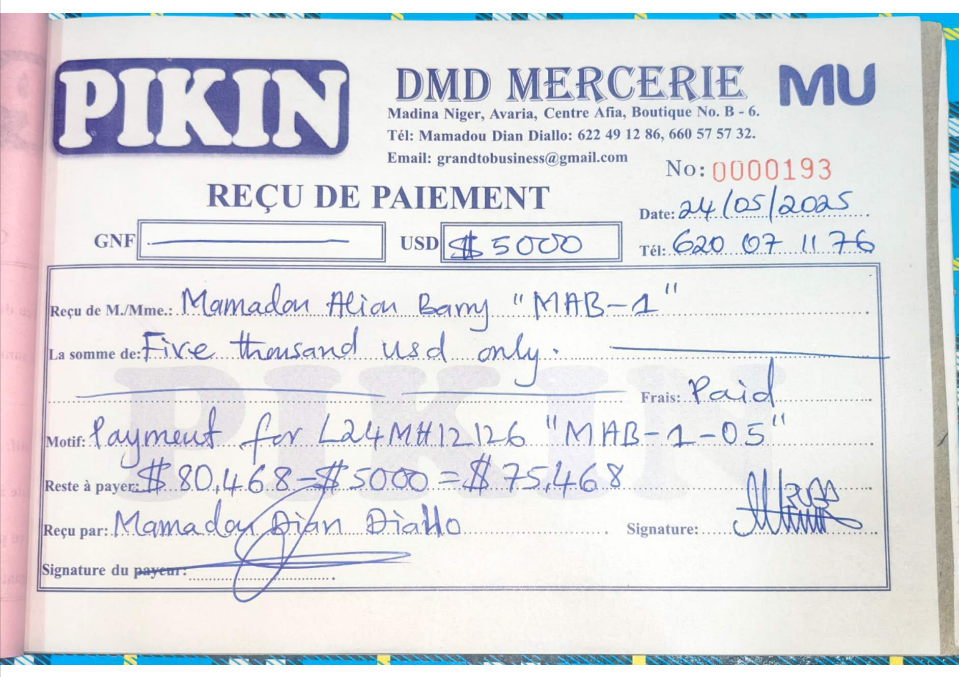 PIKIN
DMD MERCERIE MU
Madina Niger, Avaria, Centre Afia, Boutique No. B - 6.
Tél: Mamadou Dian Diallo: 622 49 12 86, 660 57 57 32.
Email: grandtobusiness@gmail.com
No: 0000193
REÇU DE PAIEMENT
Date: 24/05/2025
GNF USD $ 5000 Tél: 620 07 11 76
Reçu de M./Mme.: Mamadou Aliou Barry "MAB-1"
La somme de: Five thousand usd only.
Frais: Paid
Motif: Payment for L24MH12126 "MAB-1-05"
Reste à payer: $ 80,468 - $ 5000 = $ 75,468
Reçu par: Mamadou Dian Diallo Signature:
Signature du payeur:
PIKIN